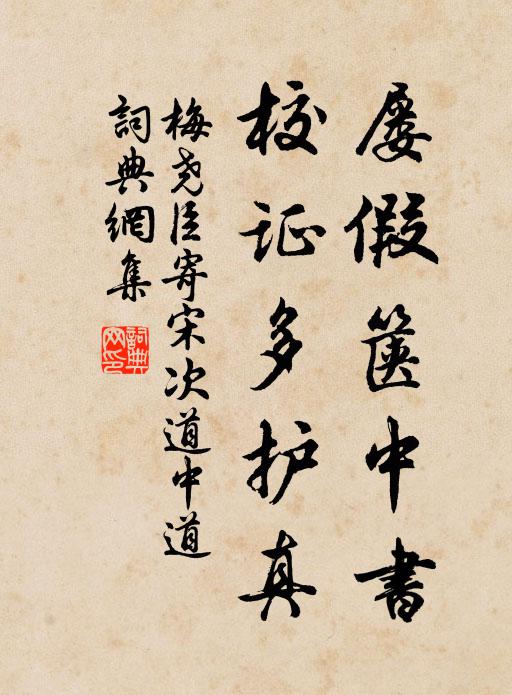 屡假箧中書
校证多护真
梅尧臣寄宋次道中道
詞典網集
詞典網印